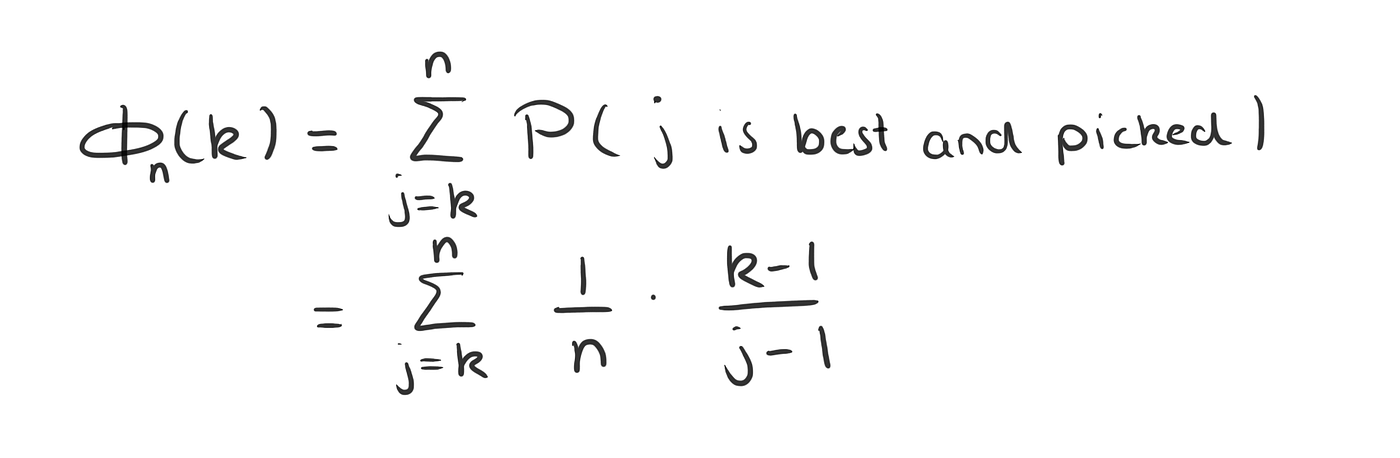 Φₙ(k) = ∑_{j=k}^{n} P( j is best and picked )
= ∑_{j=k}^{n} 1/n · (k-1)/(j-1)